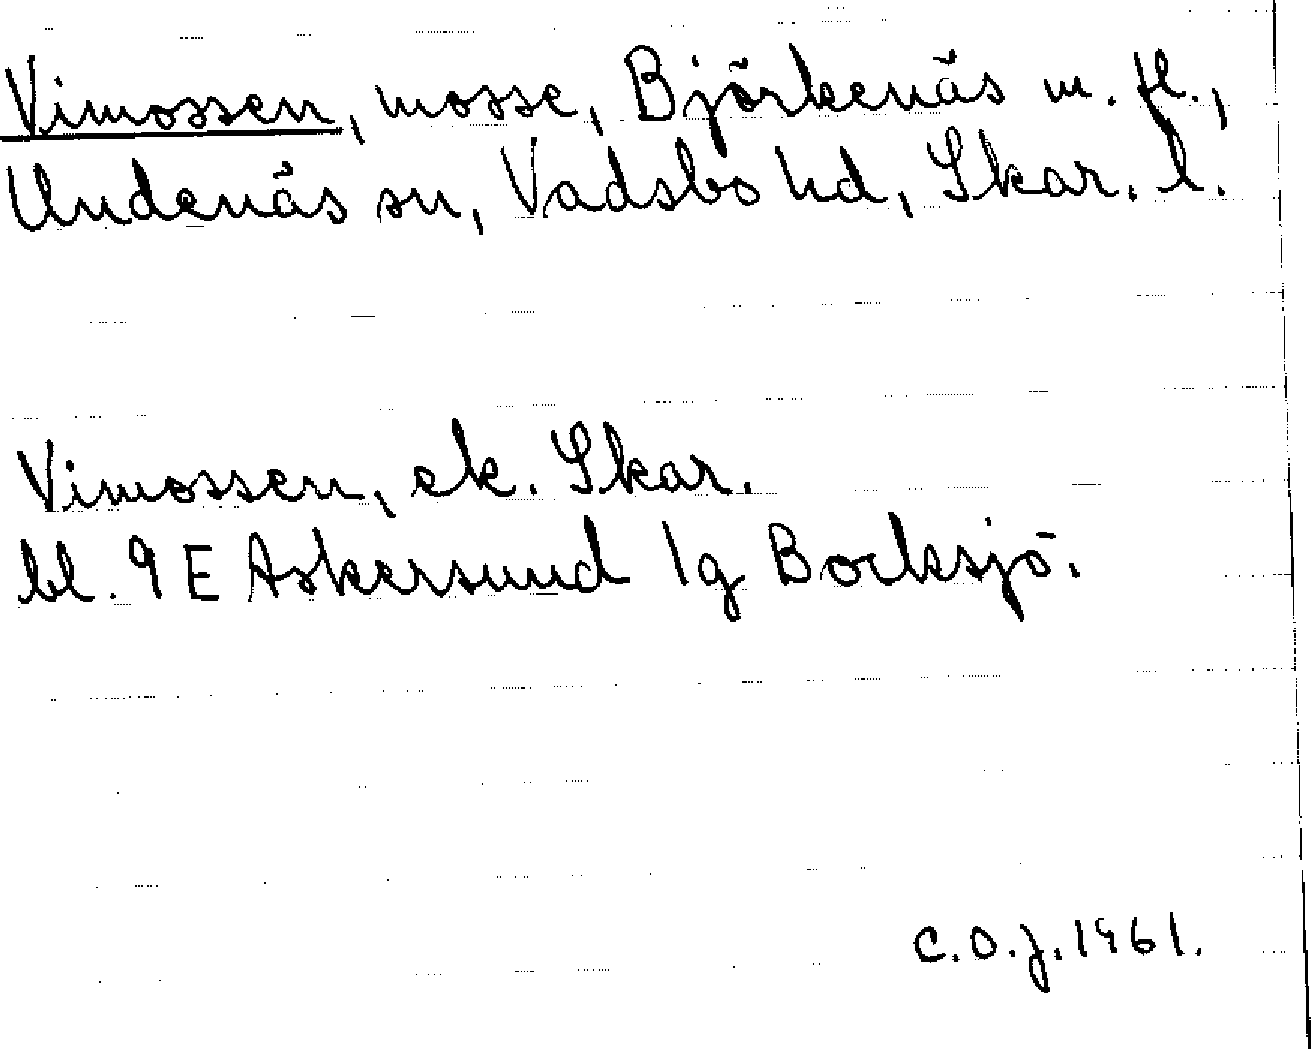 Vimossen, mosse, Björkenäs m. fl.,
Undenäs sn, Vadsbo hd, Skar. l.
Vimossen, ek. Skar.
bl. 9 E Askersund 1g Bocksjö.
C.O.J. 1961.